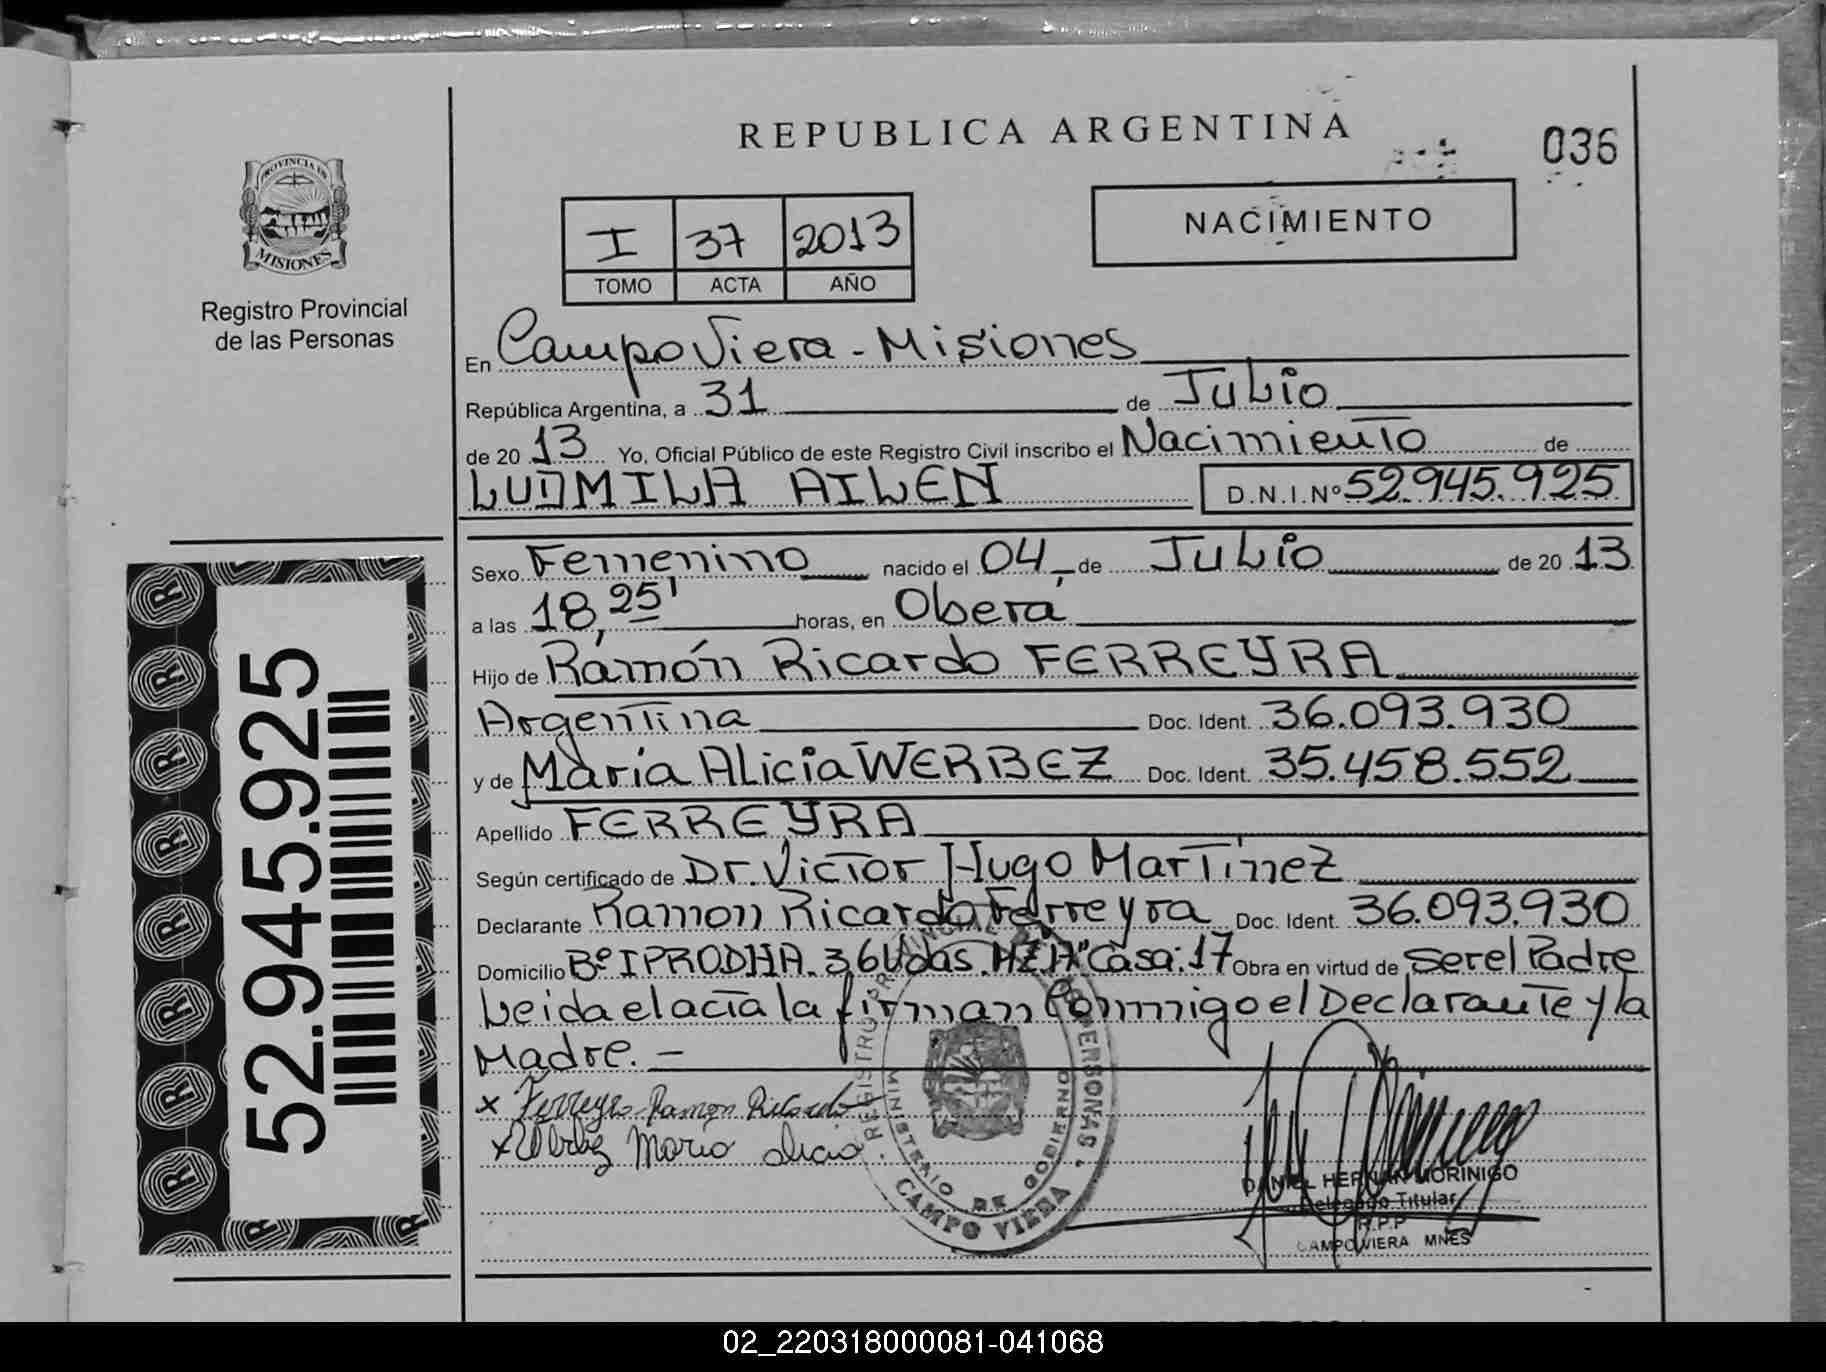 REPUBLICA ARGENTINA
036
PROVINCIA DE
MISIONES
Registro Provincial
de las Personas
I 37 2013
TOMO ACTA AÑO
NACIMIENTO
En Campo Viera - Misiones
República Argentina, a 31 de Julio
de 20 13 Yo, Oficial Público de este Registro Civil inscribo el Nacimiento de
LUDMILA AILEN D.N.I.Nº 52.945.925
Sexo Femenino nacido el 04 de Julio de 20 13
a las 18,25' horas, en Oberá
Hijo de Ramón Ricardo FERREYRA
Argentina Doc. Ident. 36.093.930
y de María Alicia WERBEZ Doc. Ident. 35.458.552
Apellido FERREYRA
Según certificado de Dr. Victor Hugo Martínez
Declarante Ramon Ricardo Ferreyra Doc. Ident. 36.093.930
Domicilio Bº IPRODHA. 36 Vdas. MZ "A" Casa: 17 Obra en virtud de Ser el Padre
Leida el acta la firman Conmigo el Declarante y la
Madre. -
x Ferreyra Ramon Ricardo
x Werbez Maria Alicia
REGISTRO PROVINCIAL DE LAS PERSONAS
MINISTERIO DE GOBIERNO
CAMPO VIERA
DANIEL HERNAN MORINIGO
Delegado Titular
R.P.P
CAMPO VIERA MNES
52.945.925
02_220318000081-041068